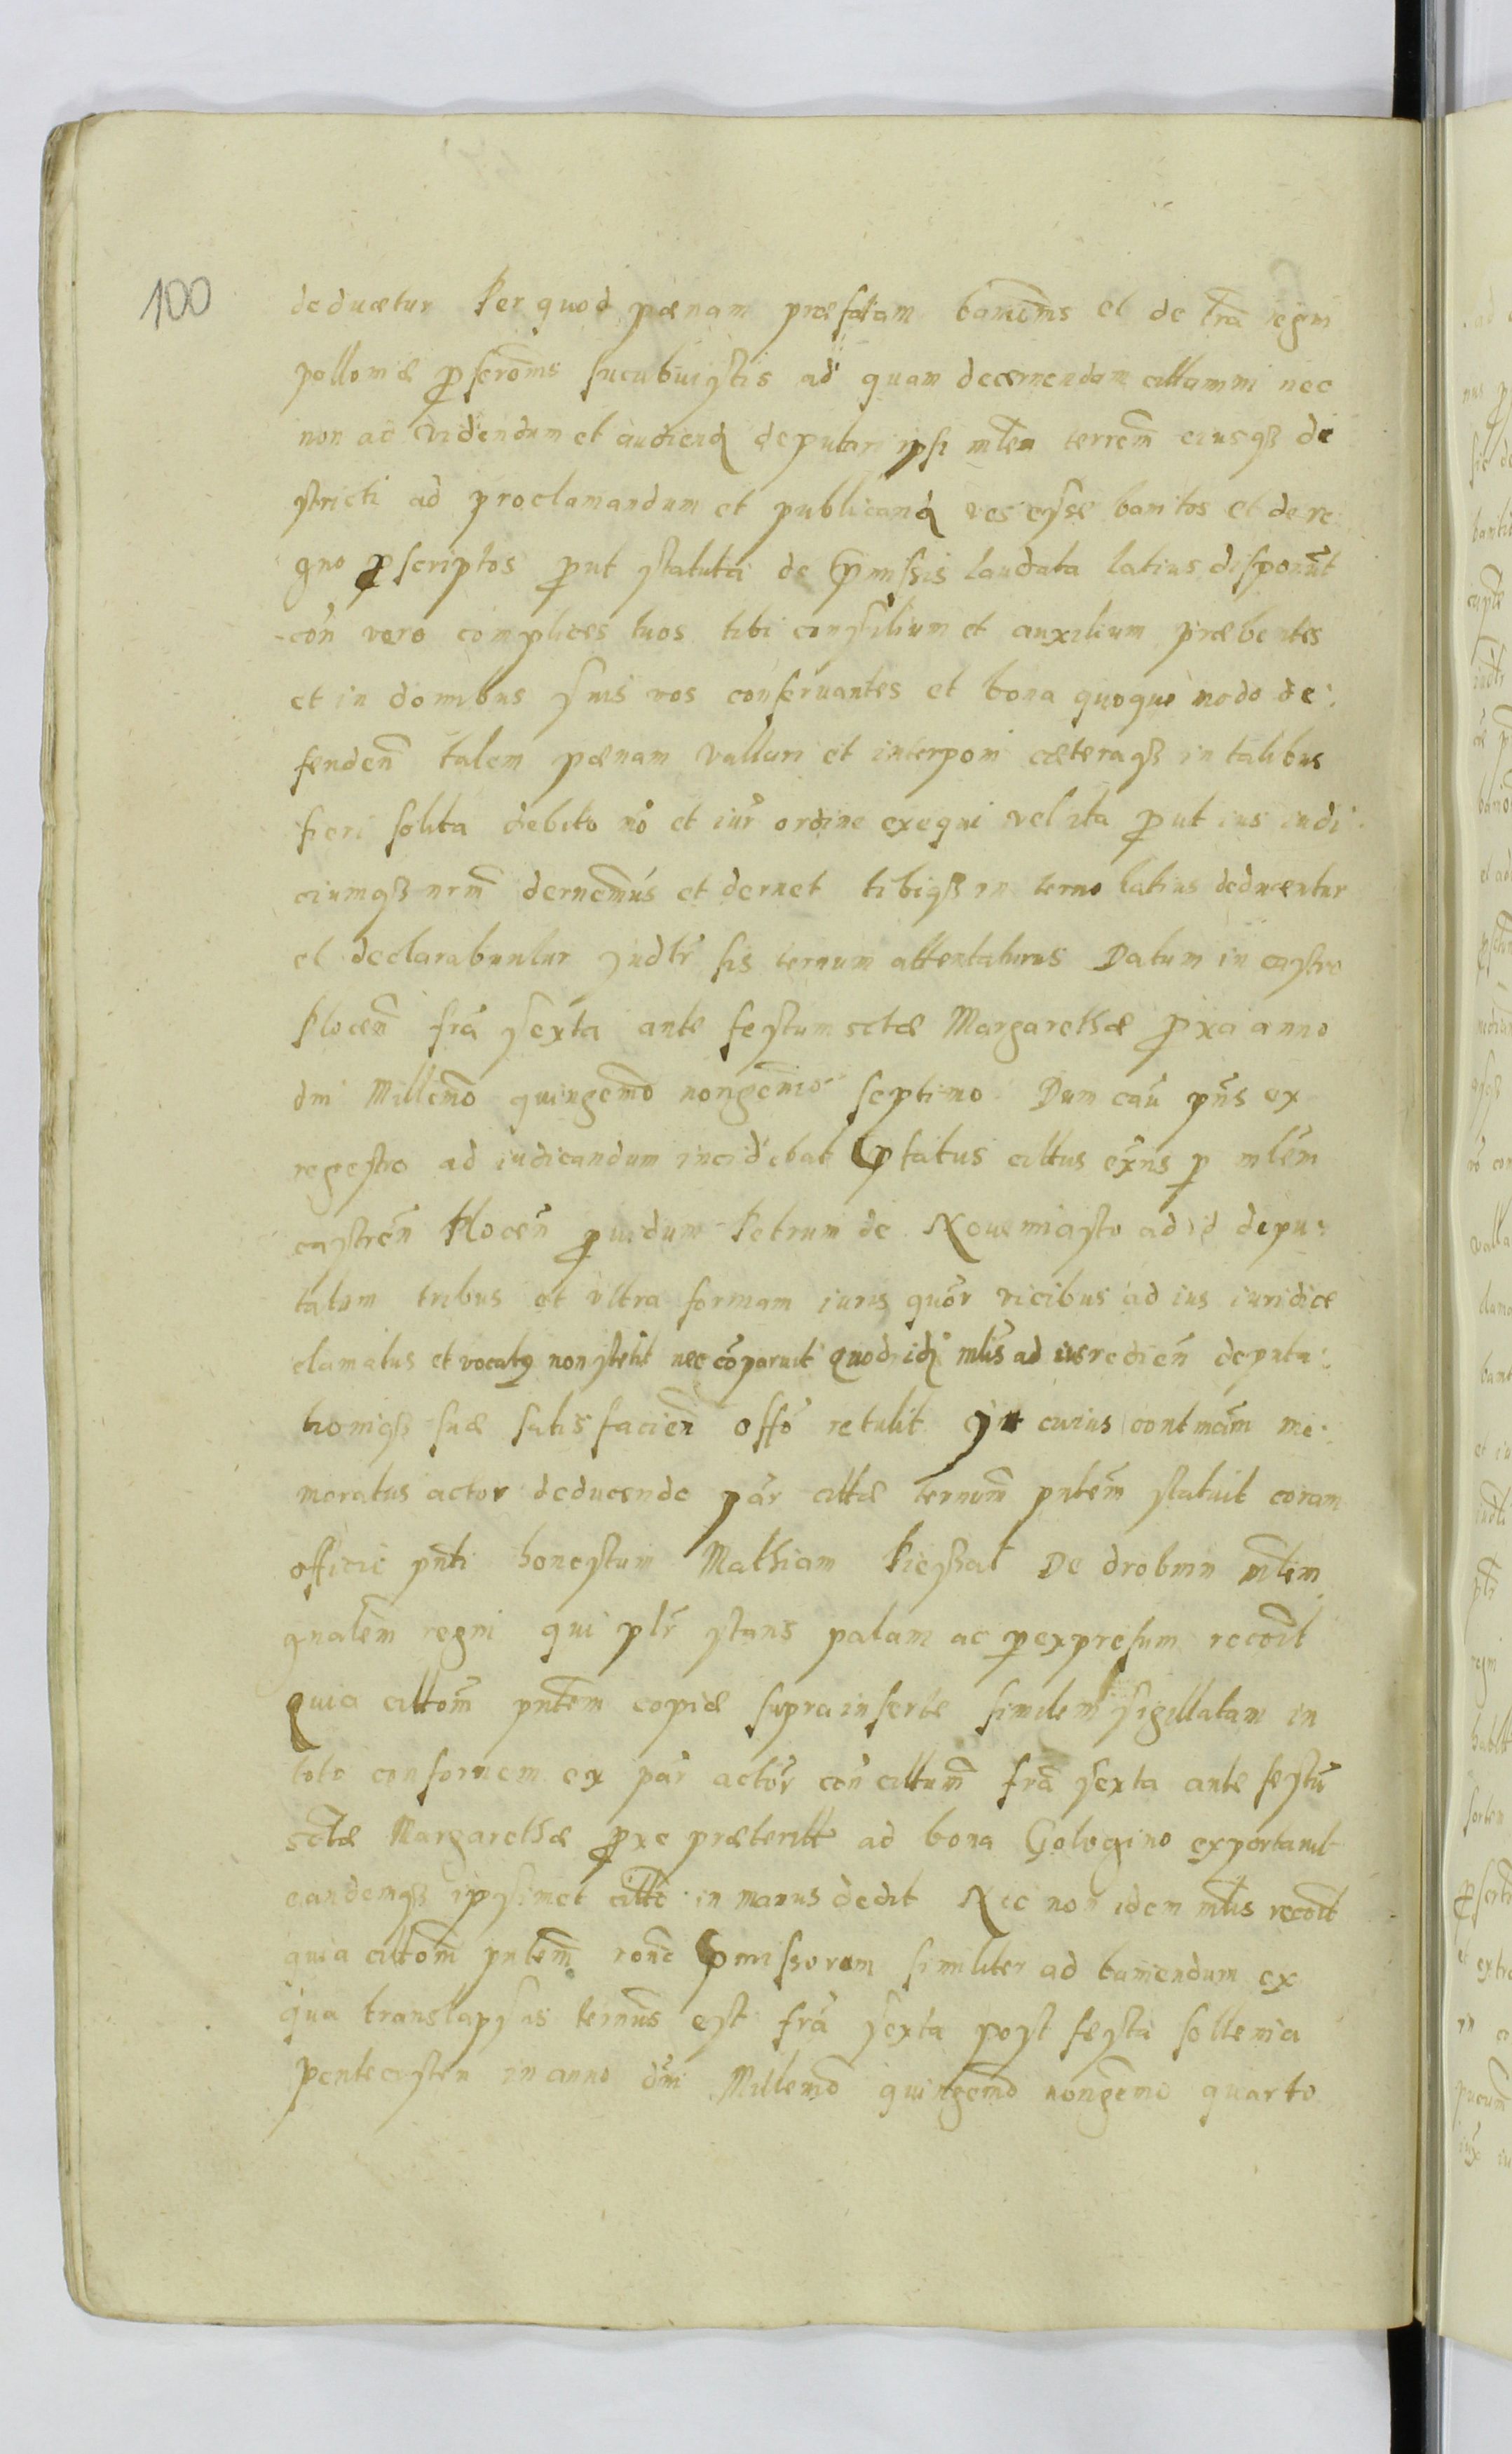 100
deducetur Per quod pœnam præfatam bannióms et de trā regni
polloniæ pscrōms sucubuistis ad quam decernendam cittammi nec
non ac videndum et audiend deputari ipsi mlem terrem eiusqß di
stricti ad proclamandum et publicand vos esse banitos et de re
gno pscriptos put statuta de pmissis laudata latius disponūt
cōn vero complices tuos tibi consilium et auxilium præbentes
et in domibus suis vos conseruantes et bona quoquo modo de:
fendeñ talem pœnam vallari et interponi cæteraqß in talibus
fieri solita debito mō et iur ordine exequi vel ita put ius iudi
ciumqß nrm dernemūs et dernet tibiqß in termo latius deducentur
et declarabuntur Judlr sis ternum attentaturus Datum in castro
Plocen frā sexta ante festum sctæ Margarethæ pxa anno
dni Millemo quingemo nongemo septimo Dum cau pns ex
regestro ad iudicandum incidebat Cptatus cittus exns p mlem
castren Plocen puidum Petrum de Nouemiasto ad id depu:
tatum tribus et vltra formam iuris quor vicibus ad ius iuridice
clamatus et vocatq non stetit nec coparuit quod idi mlis ad ius redien deputa:
tioniqß suæ satisfacien offo retulit In cuius contmam me:
moratus actor deducendo par cittæ ternum pntem statuit coram
officio pnti honestum Mathiam Pieszat De drobnin mlem
gnalem regni qui plr stans palam ac p expresum recoīt
Quia cittom pntem copiæ suprainserte similem sigillatam in
toto conformem ex par actor con cittum frā sexta ante festū
sctæ Margarethæ pxe præteritt ad bona Gologino exportauit
eandemqß ipsimet citto in manus dedit Nec non idem mlis recoīt
quia cittom pntem rone pmissorum similiter ad baniendum ex
qua translapsus ternus est frā sexta post festa sollenia
pentecosten in anno dni Millemo quingemo nongemo quarto